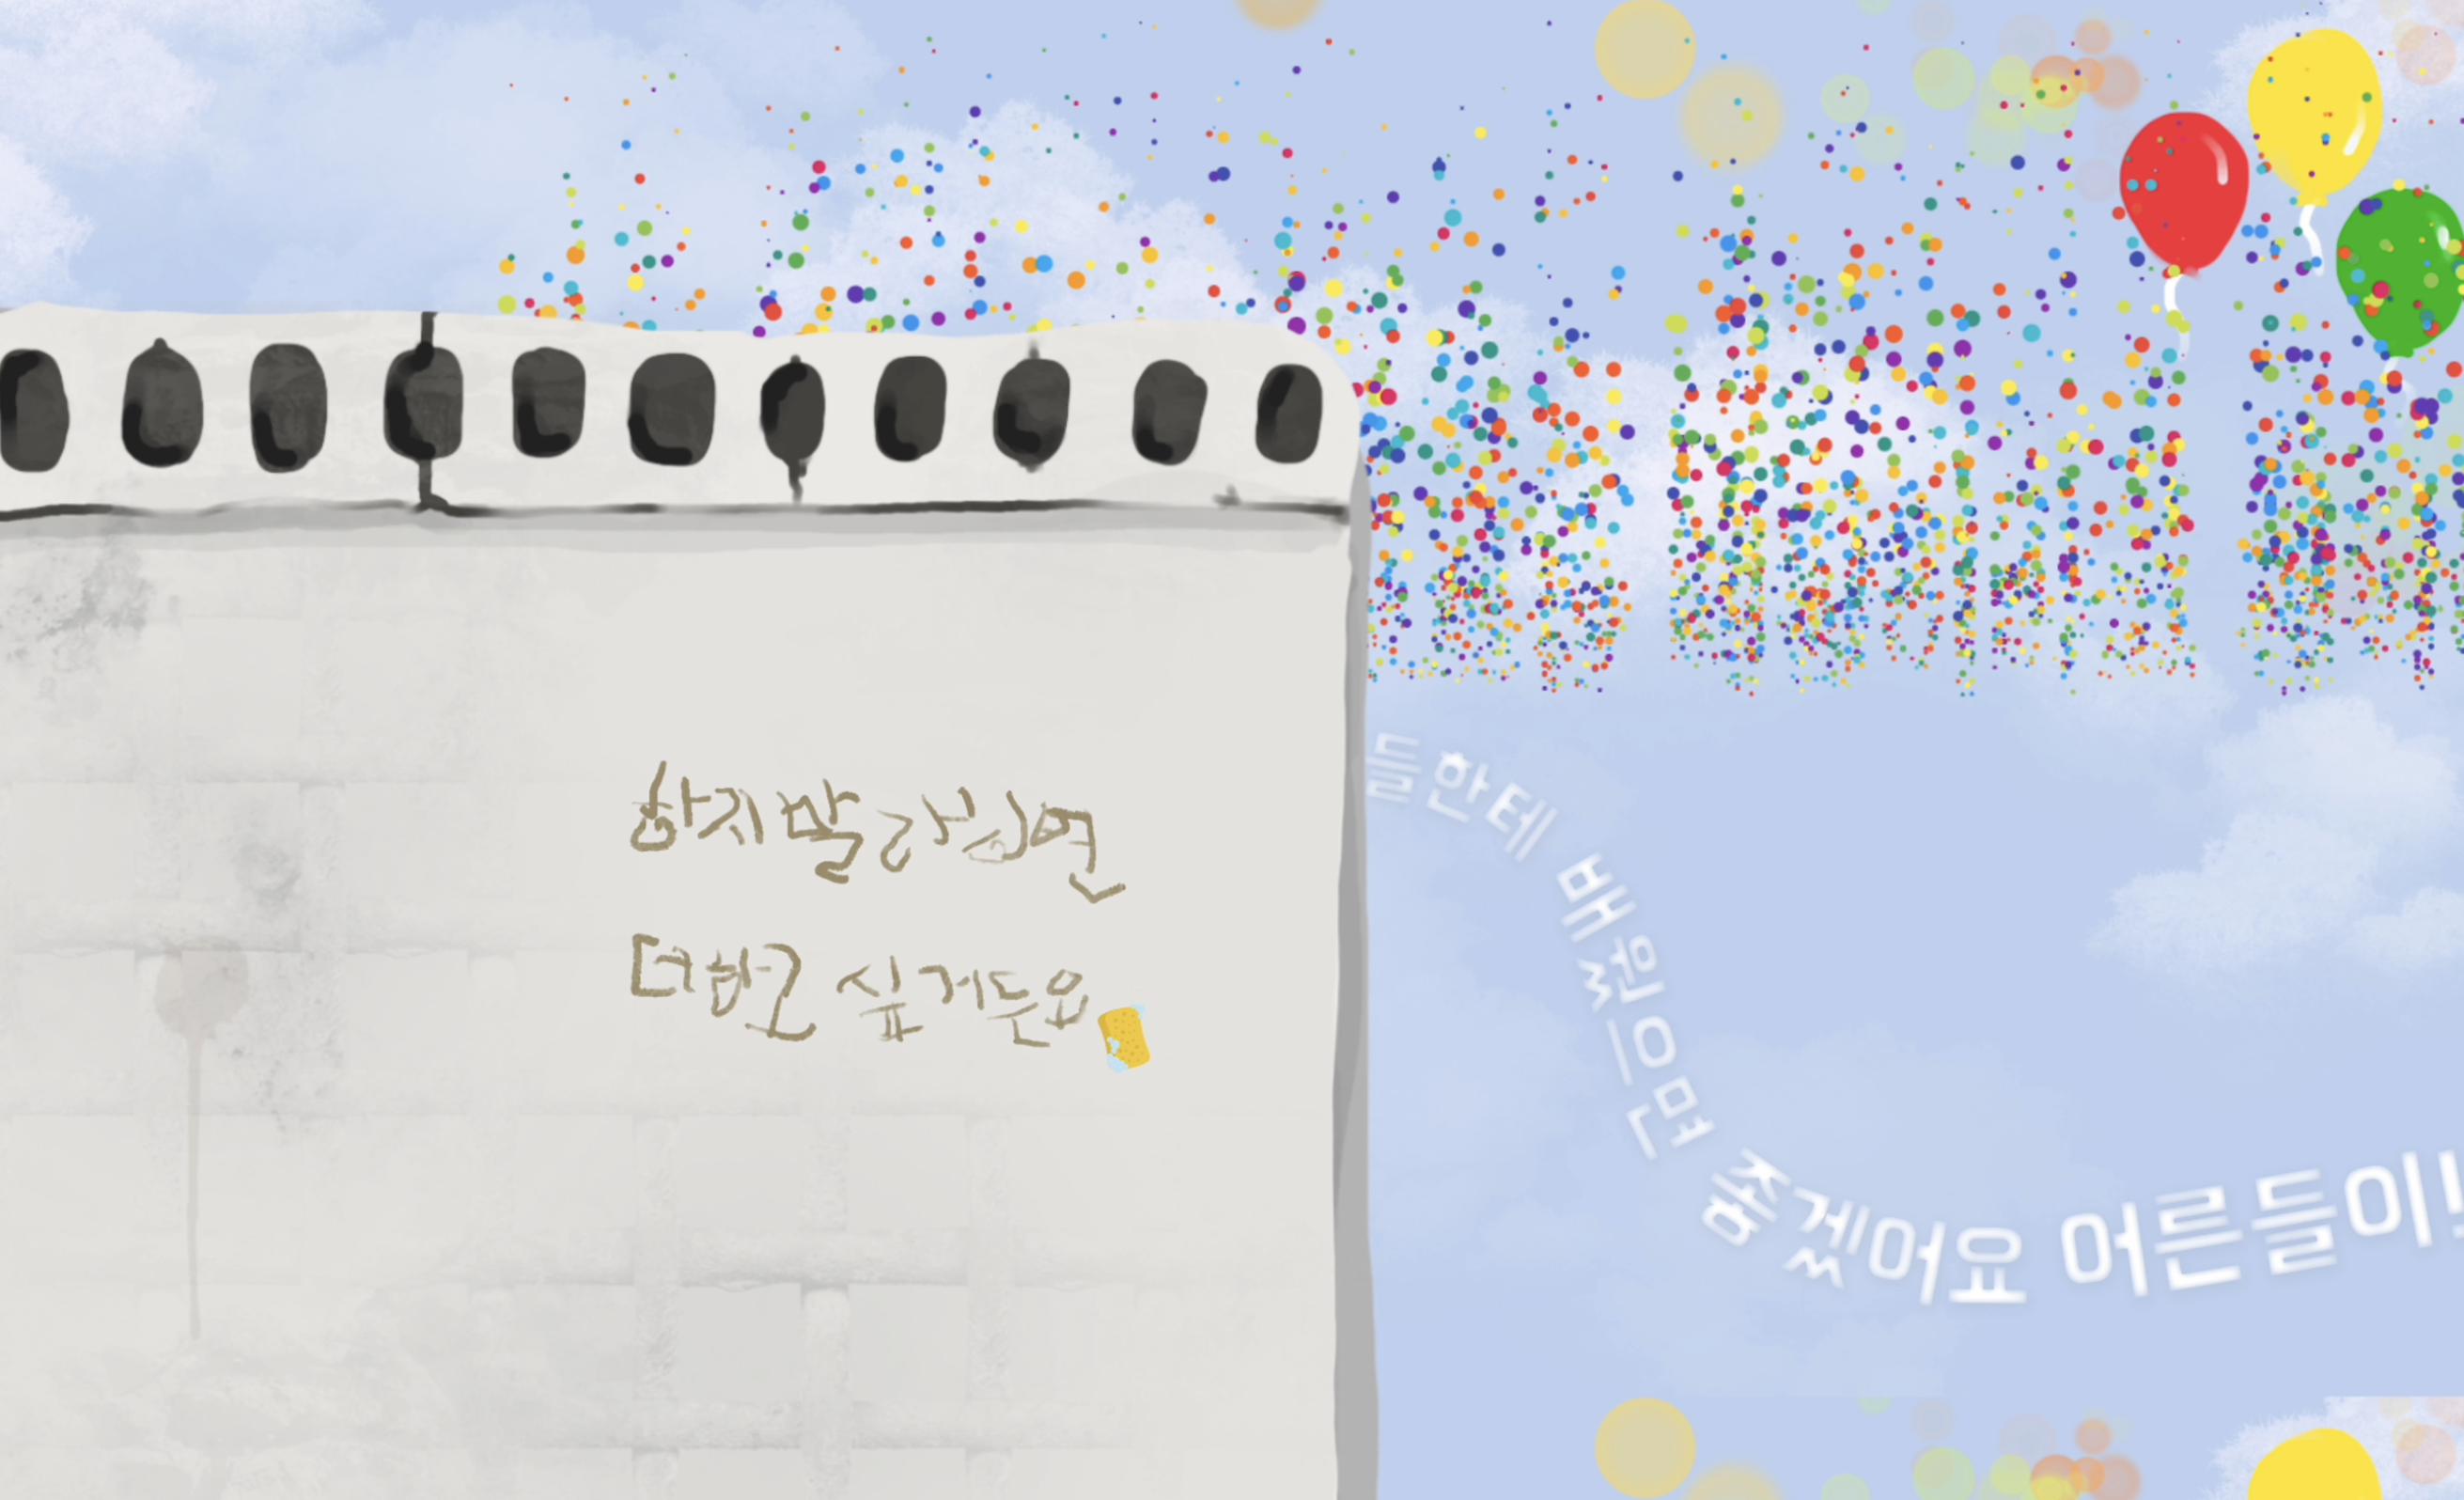 하지 말라 하면
더 하고 싶거든요
들한테 배웠으면 좋겠어요 어른들이!